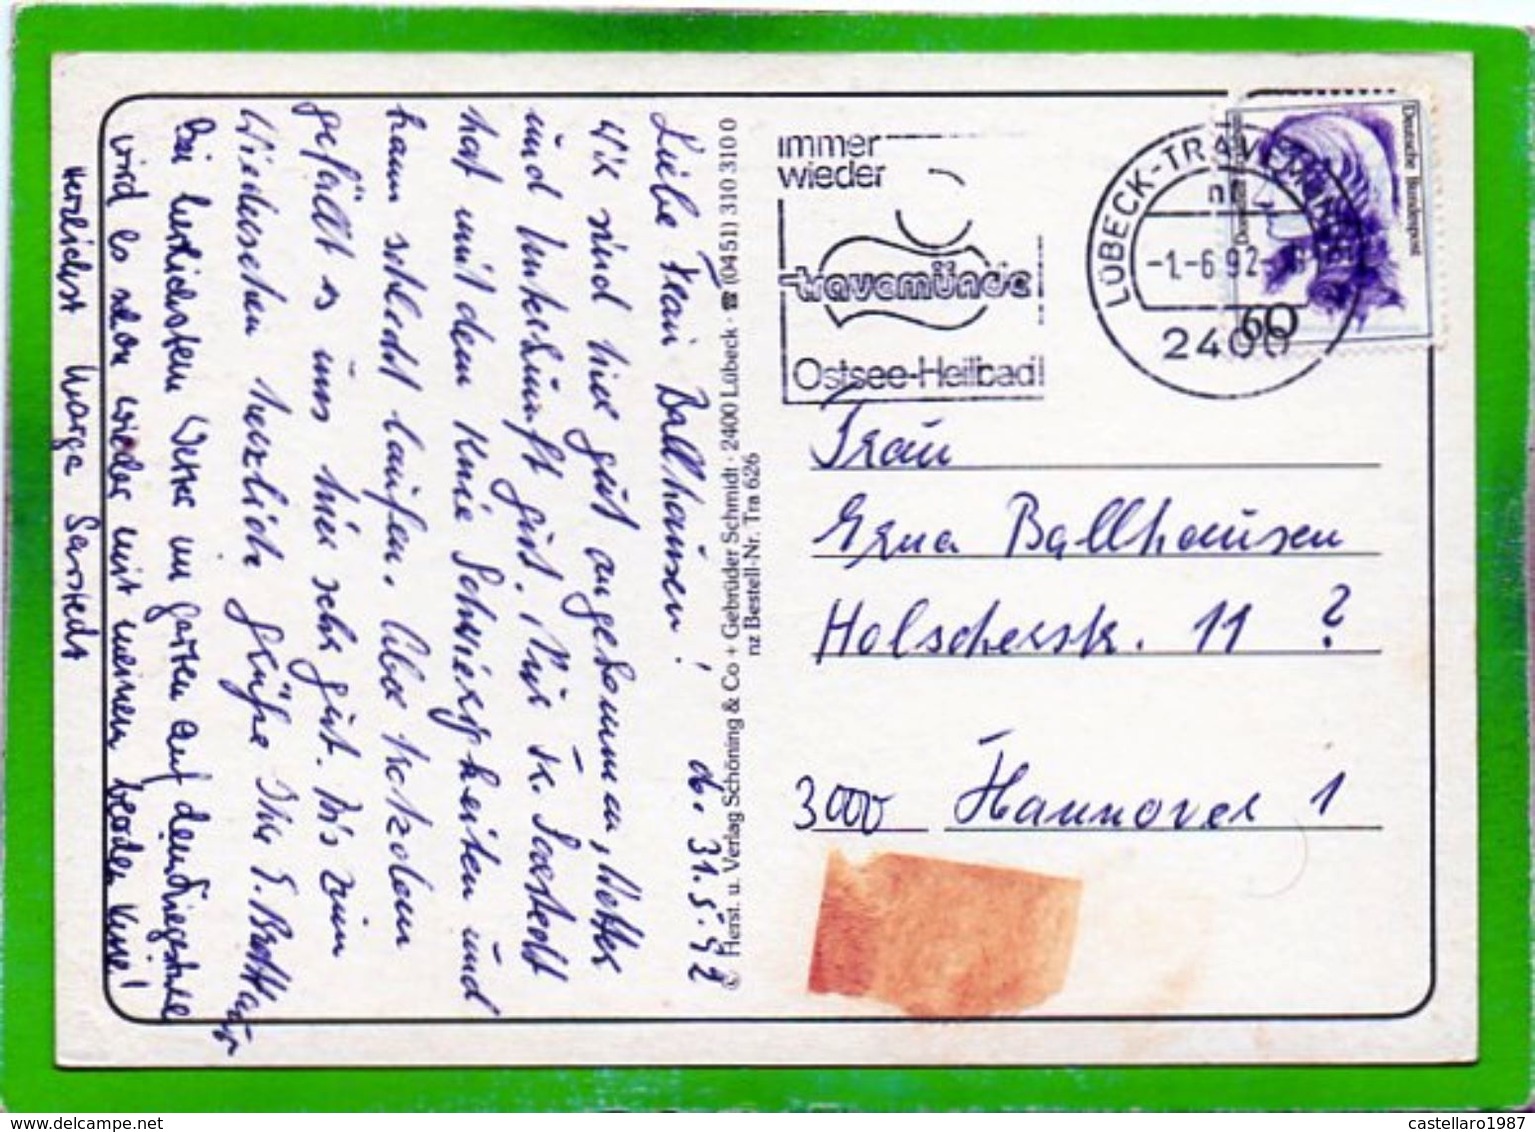 Liebe Frau Ballhausen! d. 31.5.92
Wir sind hier gut angekommen, Wetter
und Unterkunft gut. Nur Fr. Sarstedt
hat mit dem Knie Schwierigkeiten und
kann schlecht laufen. Aber trotzdem
gefällt es uns hier sehr gut. Bis zum
Wiedersehen herzliche Grüße Ihre
Bei herrlichstem Wetter im Garten auf dem Liegestuhl
wird es schon wieder mit meinem Knie!
Herzlichst Marga Sarstedt
© Herst. u. Verlag Schöning & Co + Gebrüder Schmidt · 2400 Lübeck · ☎ (0451) 310 310 0
nz Bestell-Nr. Tra 626
immer
wieder
travemünde
Ostsee-Heilbad
LÜBECK-TRAVEMÜNDE
-1.-6.92
2400
Deutsche Bundespost
60
Frau
Erna Ballhausen
Holscherstr. 11 ?
3000 Hannover 1
castellaro1987